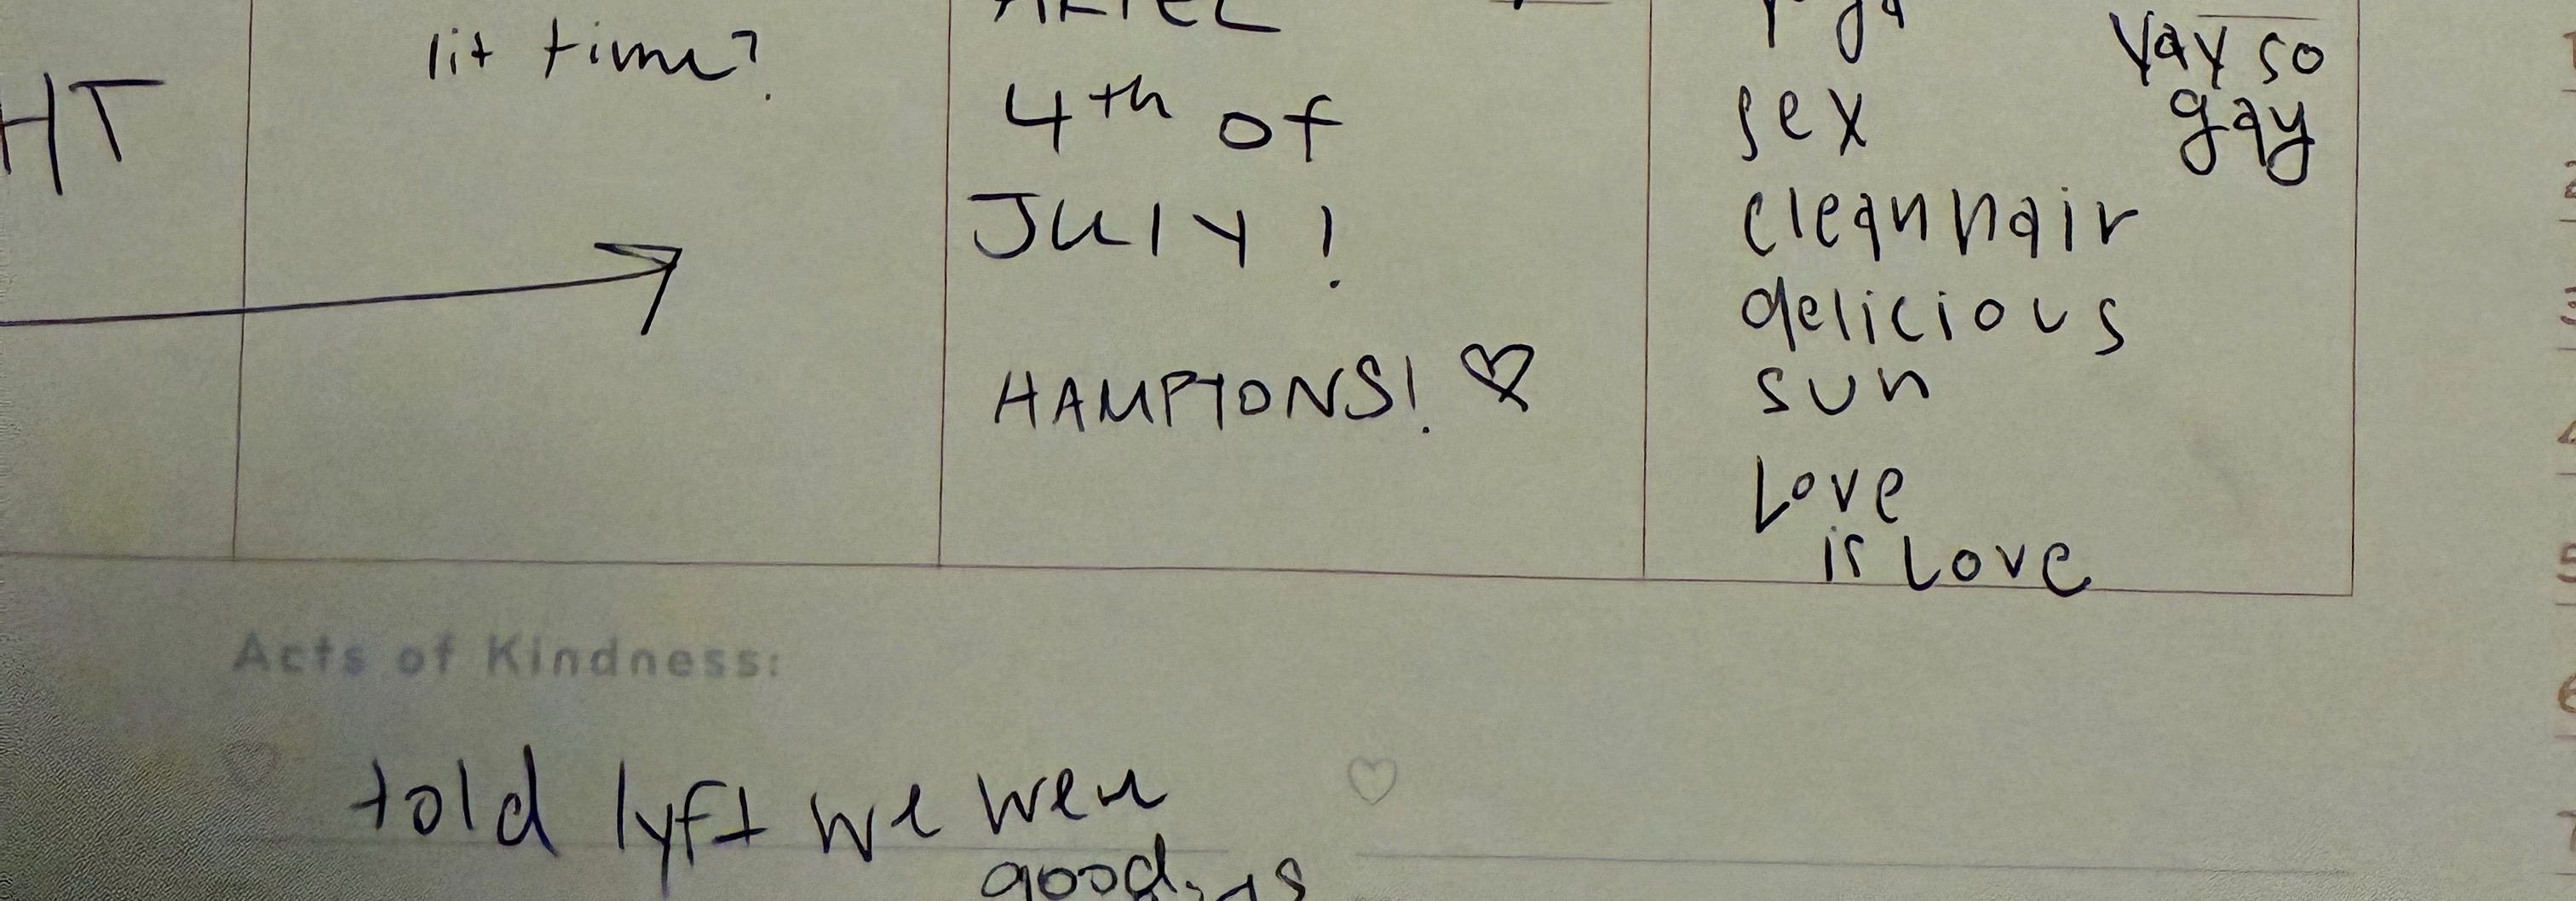 HT
lit time?
ARIEL
4th of
JULY!
HAMPTONS! ♡
yoga
sex
clean hair
delicious
sun
Love
is Love
yay so
gay
Acts of Kindness:
told lyft we were
good